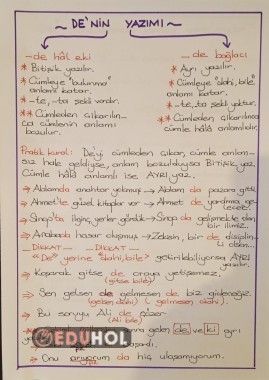 DE'NİN YAZIMI
-de hâl eki
* Bitişik yazılır.
* Cümleye "bulunma" anlamı katar.
* -te, -ta şekli vardır.
** Cümleden çıkarılınca cümlenin anlamı bozulur.
-de bağlacı
* Ayrı yazılır.
* Cümleye "dahi, bile" anlamı katar.
* -te, -ta şekli yoktur.
** Cümleden çıkarılınca cümle hâlâ anlamlıdır.
Pratik kural: De'yi cümleden çıkar, cümle anlam-
sız hale geldiyse, anlam bozulduysa Bitişik yaz.
Cümle hâlâ anlamlı ise AYRI yaz.
anahtar yokmuş → Adam da pazara gitti.
→ Ahmet'te güzel kitaplar var → Ahmet de yardıma gelecek.
→ Sinop'ta ilginç yerler gördük → Sinop da gelişmekte olan bir ilimiz.
→ Arabada hasar oluşmuş → Zekisin, bir de disiplinli olsan..
- DİKKAT - - DİKKAT -
"De" yerine "dahi, bile" getirilebiliyorsa AYRI yazılır.
→ Koşarak gitse de oraya yetişemez.
(gitse bile)
→ Sen gelsen de gelmesen de biz gideceğiz.
(gelsen dahi) (gelmesen dahi)
→ Bu soruyu Ali de çözer
(Ali bile)
gelen de ve ki ayrı
EDUHOL
→ Onu arıyorum da hiç ulaşamıyorum.